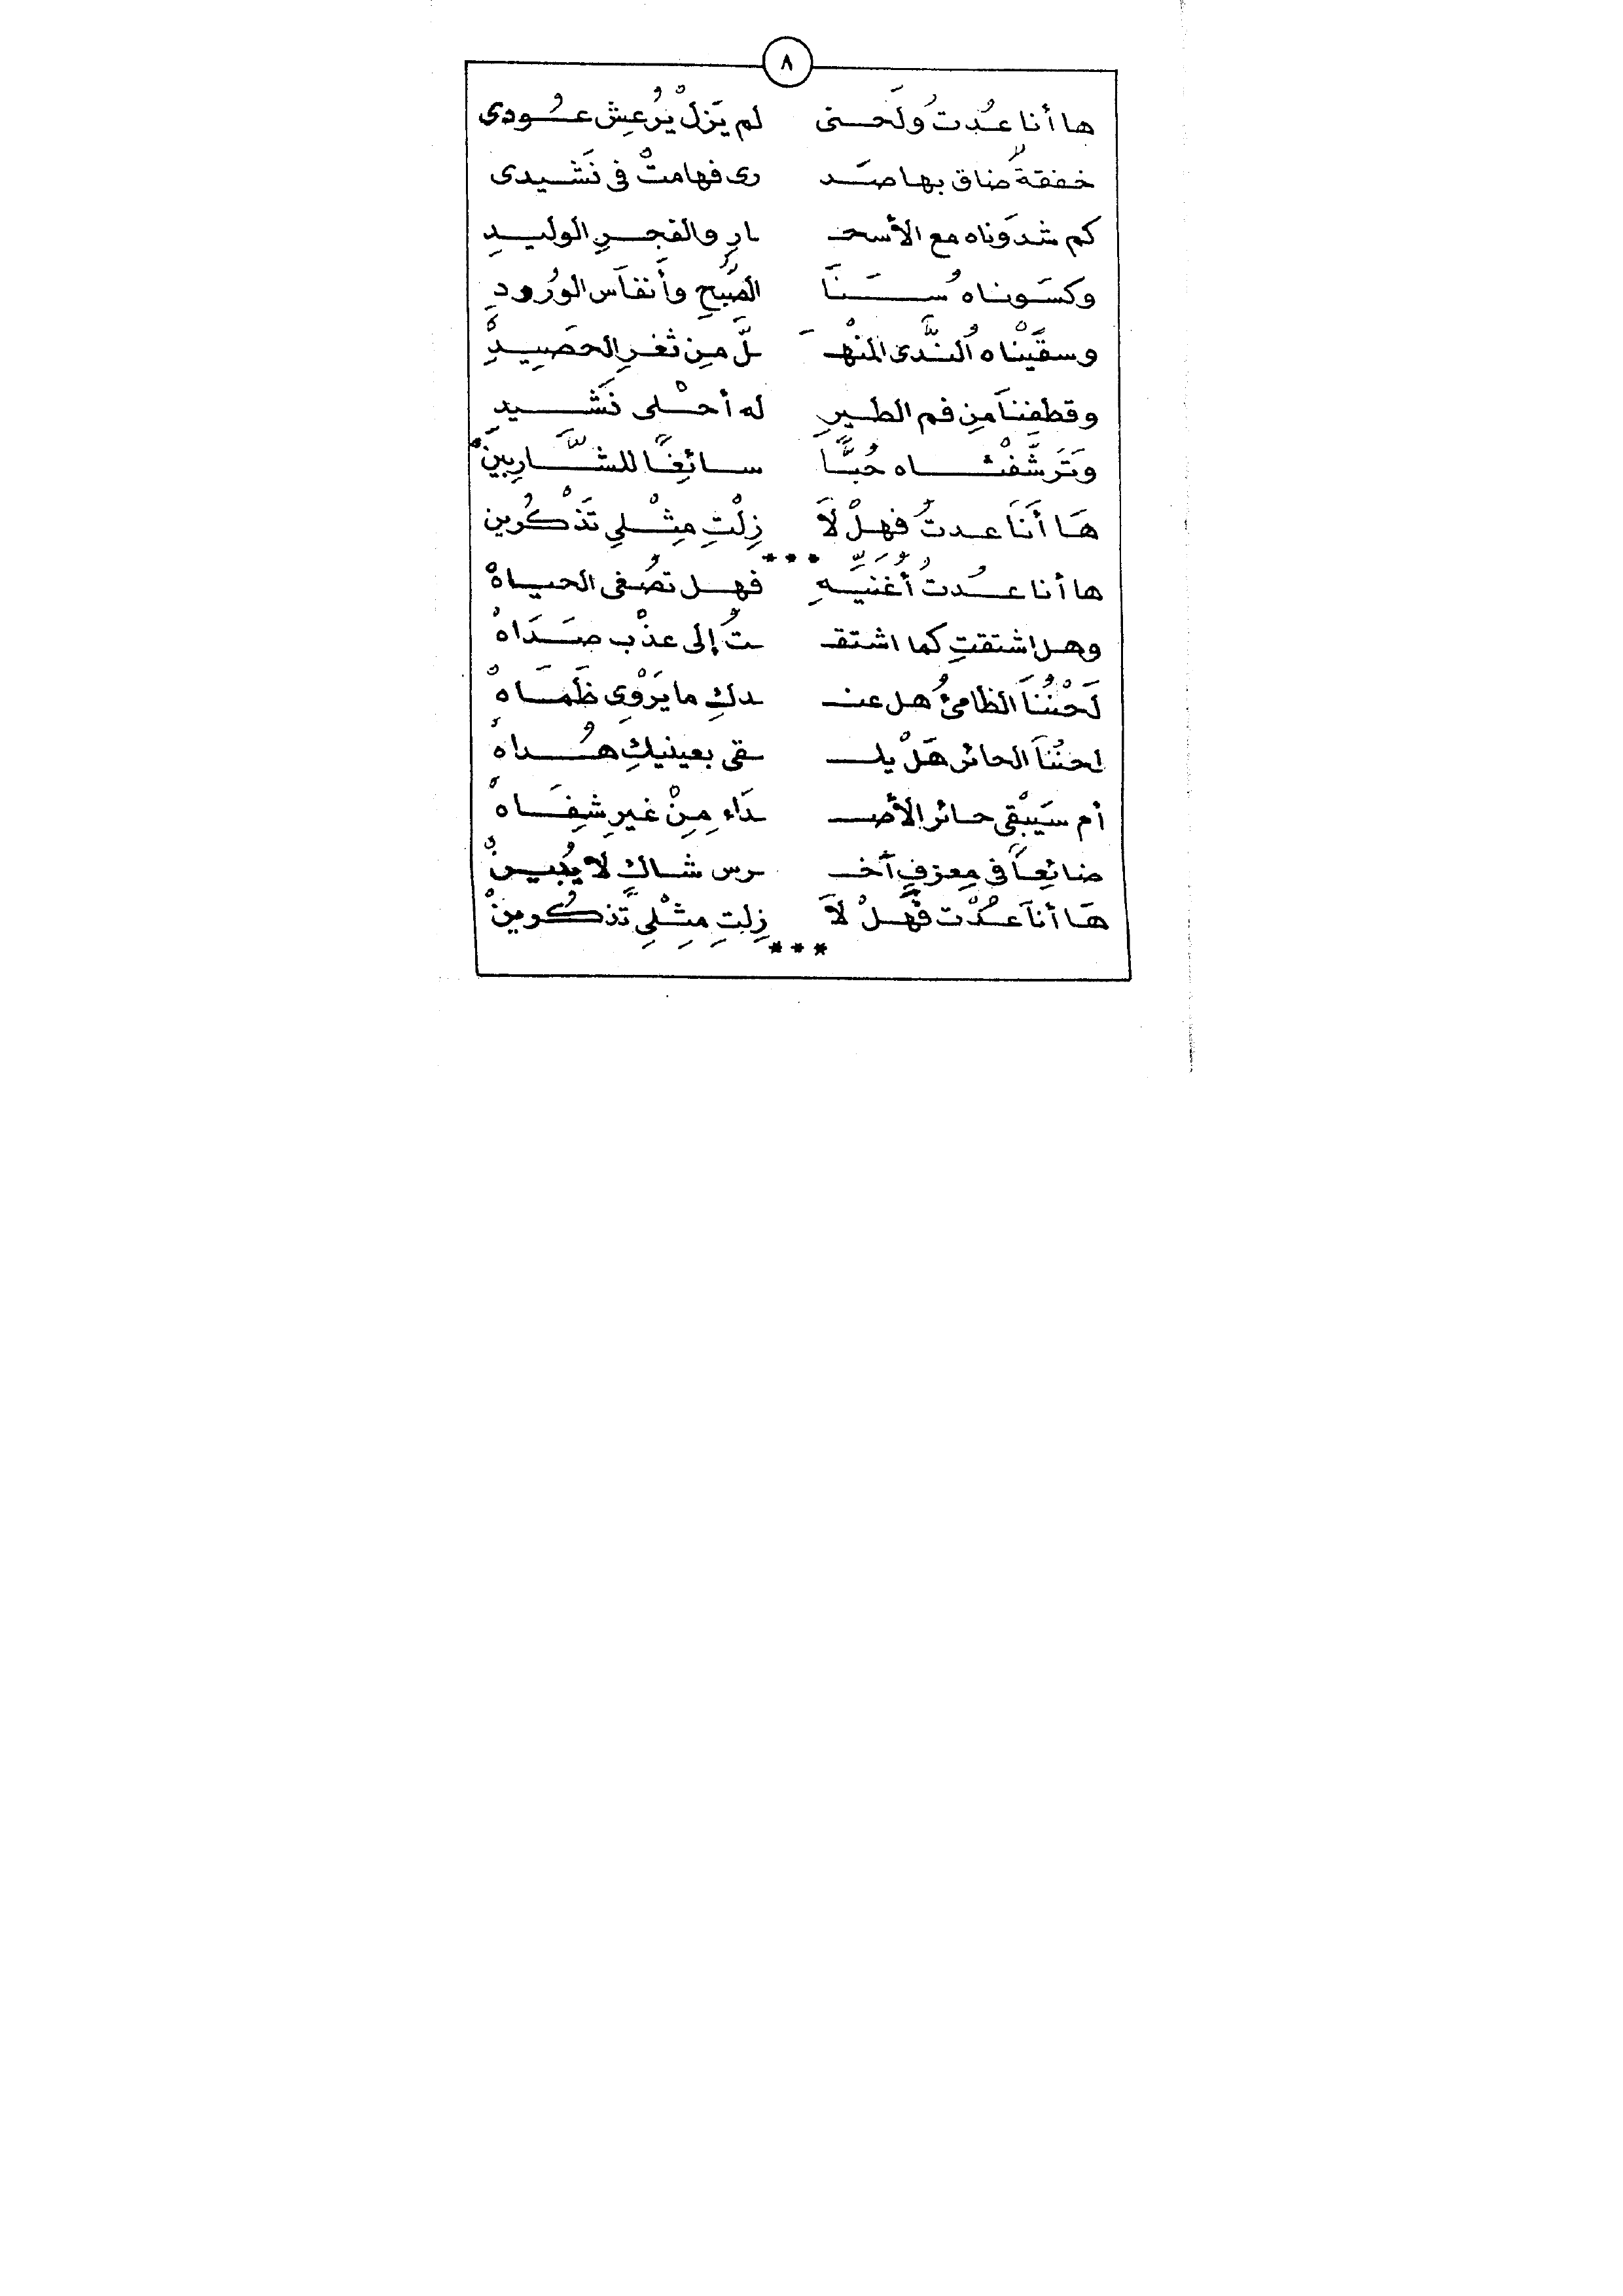 ٨
ها أنا عُدتُ ولَحنى لم يَزلْ يُرعِش عُودى
خفقةٌ ضاق بها صَد رى فهامتْ فى نَشيدى
كم شدوَناه مع الأسحـ ـارِ والفجرِ الوليدِ
وكسَوناهُ سَنَا الصُبحِ وأَنفاَس الورُودِ
وسقَيْناهُ النَّدى المنْهَـ ـلَّ مِن ثغرِ الحَصِيدِ
وقطفنَا مِن فم الطيرِ له أحْلى نَشيدِ
وَتَرشَّفْنَاه حُبًّا سائِغًا للشَّارِبِينْ
هَا أَنَا عدتُ فهلْ لاَ زِلْتِ مِثْلِي تَذْكُرين
***
ها أنا عُدتُ أُغَنيِّهِ فهل تصُغى الحياهْ
وهل اشتقتِ كما اشتقـ ـتُ إلى عذْب صَدَاهْ
لَحْنُنَا الظامئُ هل عنـ ـدكِ ما يَرْوِى ظَمَاهْ
لحنُنَا الحائر هَلْ يلـ ـقى بعينيكِ هُداهْ
أم سَيَبْقى حائر الأصـ ـدَاءِ مِنْ غيرِ شِفَاهْ
ضائِعاً فى مِعزفٍ أخـ ـرس شاكٍ لا يُبينْ
هَا أنَا عُدْت فَهلْ لاَ زِلتِ مِثْلِي تَذكُرينْ
***